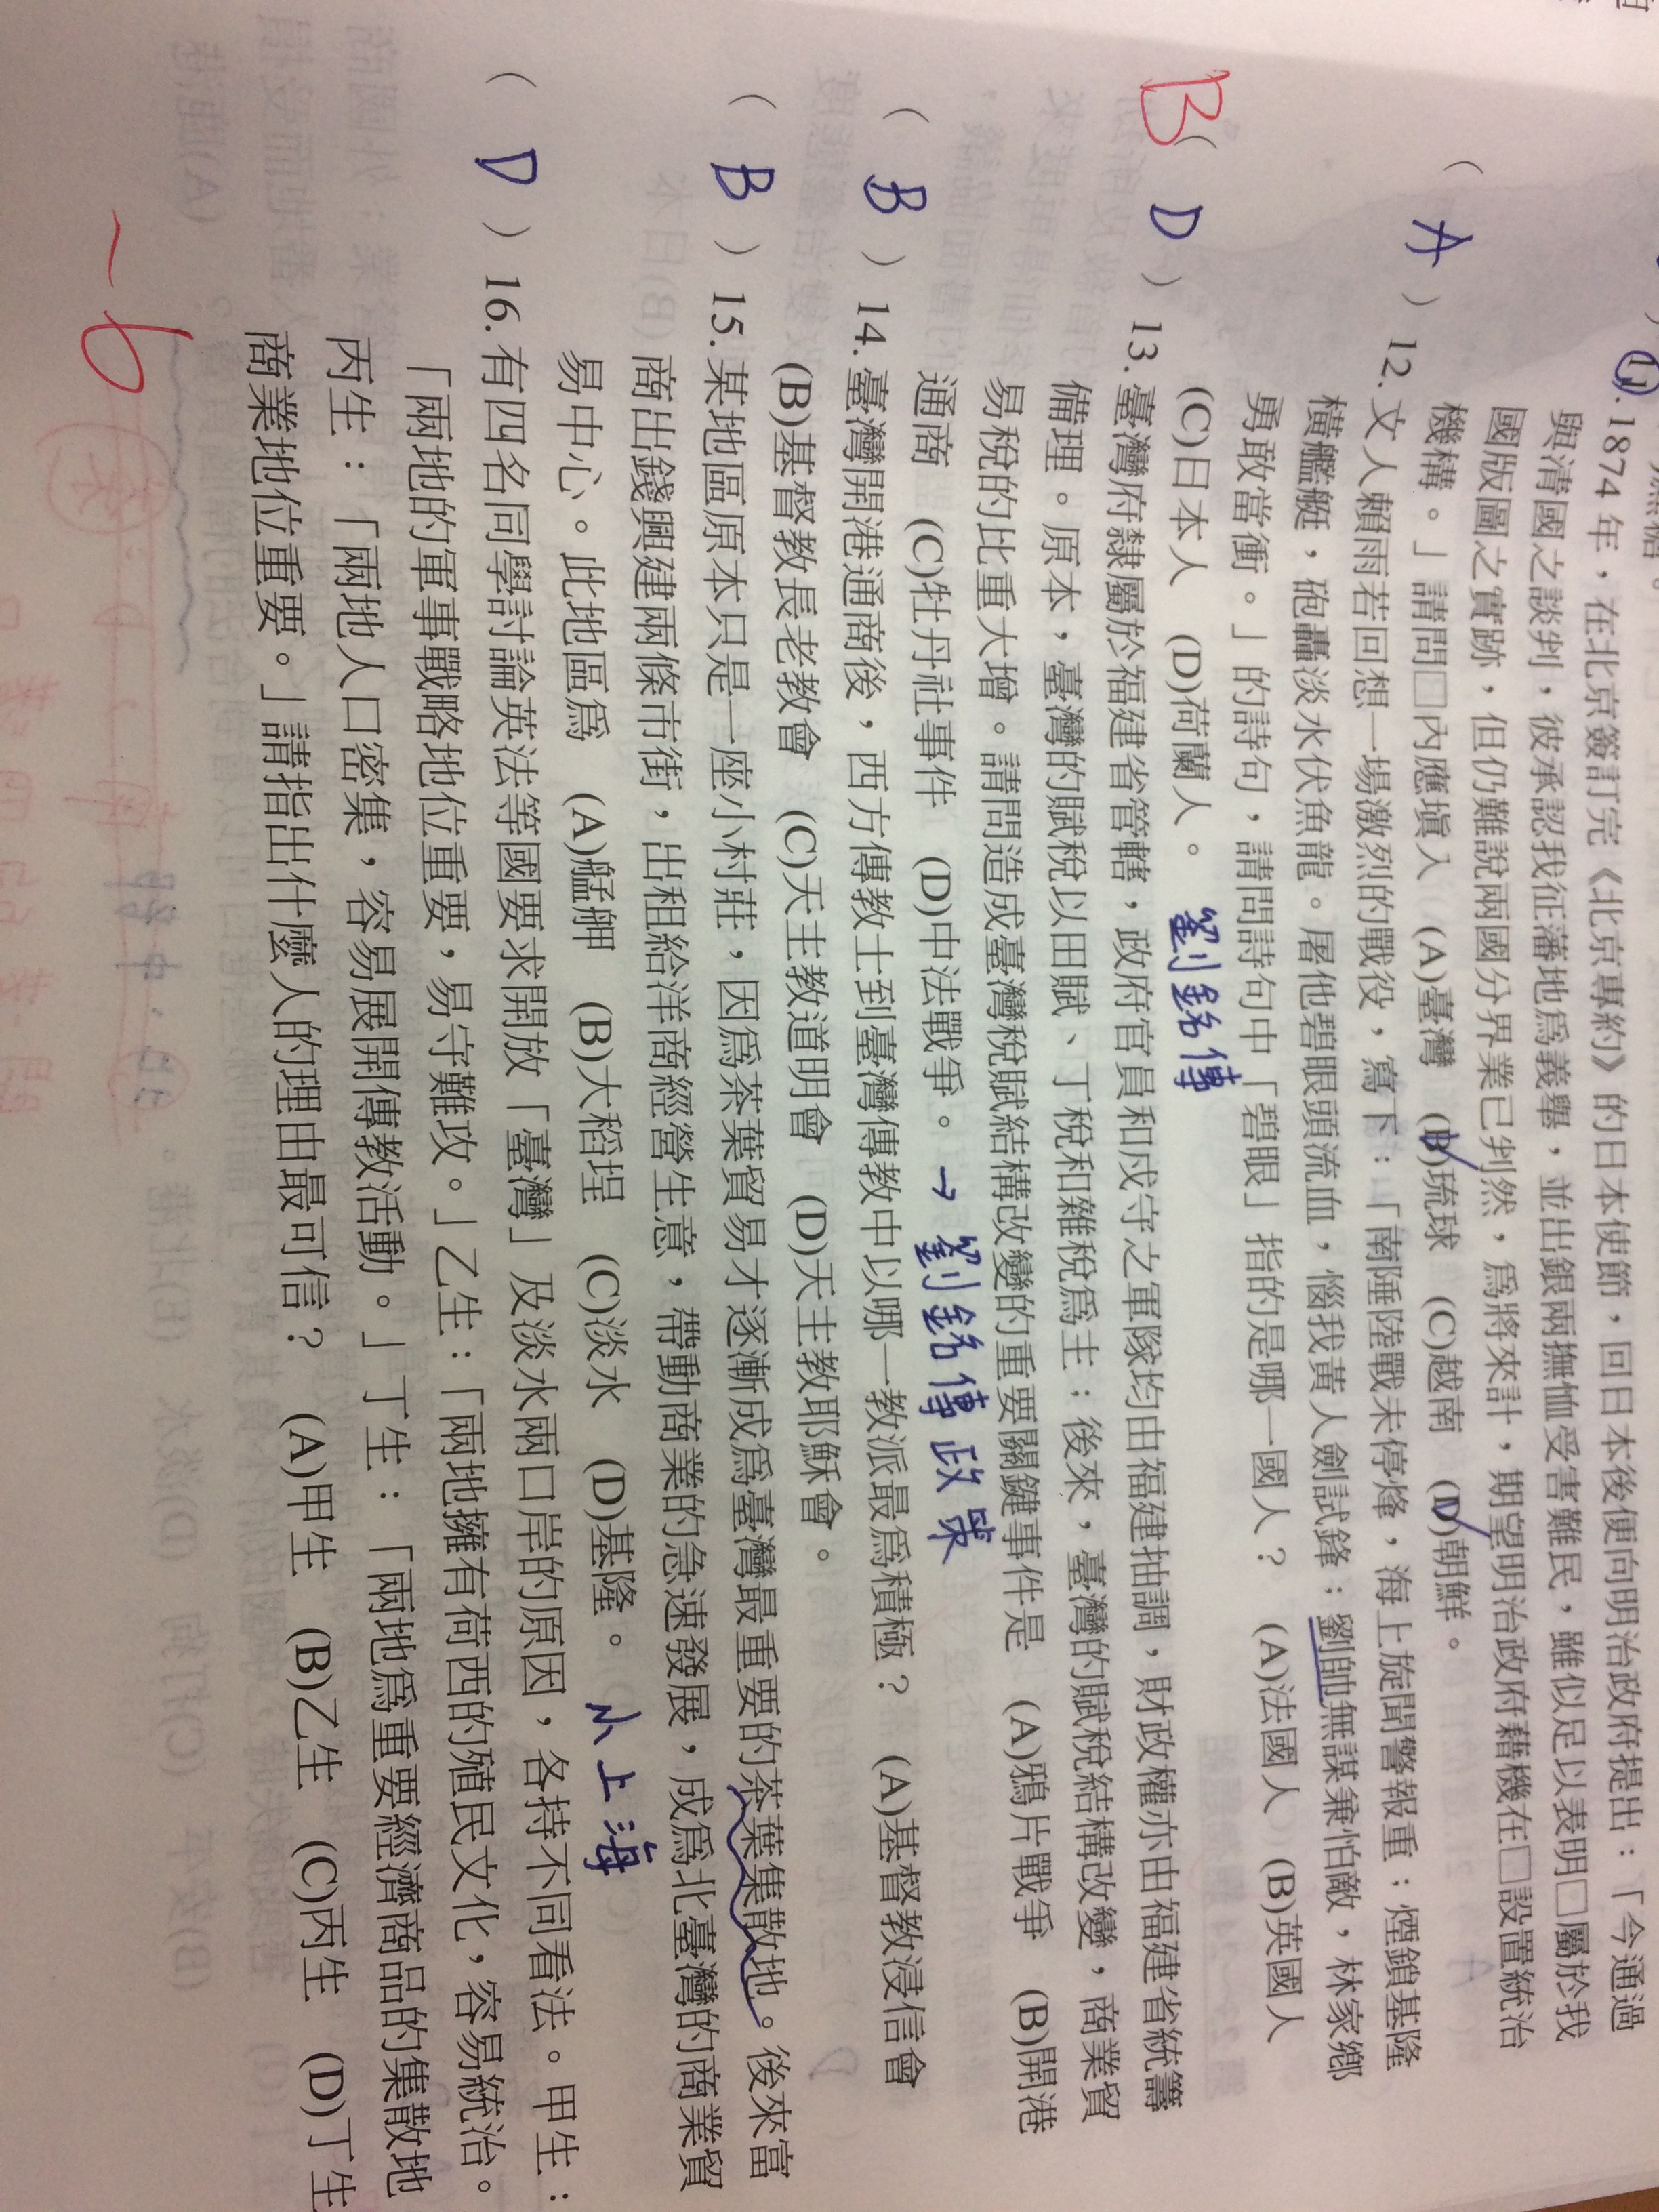 11.1874 年,在北京簽訂完《北京專約》的日本使節,回日本後便向明治政府提出:「今通過
與清國之談判,彼承認我征藩地為義舉,並出銀兩撫恤受害難民,雖似足以表明□屬於我
國版圖之實跡,但仍難說兩國分界業已判然,為將來計,期望明治政府藉機在□設置統治
機構。」請問□內應填入 (A)臺灣 (B)琉球 (C)越南 (D)朝鮮。
( A )12.文人賴雨若回想一場激烈的戰役,寫下:「南陲陸戰未停烽,海上旋聞警報重;煙鎖基隆
橫艦艇,砲轟淡水伏魚龍。屠他碧眼頭流血,惱我黃人劍試鋒;劉帥無謀兼怕敵,林家鄉
勇敢當衝。」的詩句,請問詩句中「碧眼」指的是哪一國人? (A)法國人 (B)英國人
(C)日本人 (D)荷蘭人。 劉銘傳
B( D )13.臺灣府隸屬於福建省管轄,政府官員和戍守之軍隊均由福建抽調,財政權亦由福建省統籌
備理。原本,臺灣的賦稅以田賦、丁稅和雜稅為主;後來,臺灣的賦稅結構改變,商業貿
易稅的比重大增。請問造成臺灣稅賦結構改變的重要關鍵事件是 (A)鴉片戰爭 (B)開港
通商 (C)牡丹社事件 (D)中法戰爭。→劉銘傳政策
( B )14.臺灣開港通商後,西方傳教士到臺灣傳教中以哪一教派最為積極? (A)基督教浸信會
(B)基督教長老教會 (C)天主教道明會 (D)天主教耶穌會。
( B )15.某地區原本只是一座小村莊,因為茶葉貿易才逐漸成為臺灣最重要的茶葉集散地。後來富
商出錢興建兩條市街,出租給洋商經營生意,帶動商業的急速發展,成為北臺灣的商業貿
易中心。此地區為 (A)艋舺 (B)大稻埕 (C)淡水 (D)基隆。 小上海
( D )16.有四名同學討論英法等國要求開放「臺灣」及淡水兩口岸的原因,各持不同看法。甲生:
「兩地的軍事戰略地位重要,易守難攻。」乙生:「兩地擁有荷西的殖民文化,容易統治。」
丙生:「兩地人口密集,容易展開傳教活動。」丁生:「兩地為重要經濟商品的集散地
商業地位重要。」請指出什麼人的理由最可信? (A)甲生 (B)乙生 (C)丙生 (D)丁生
-6